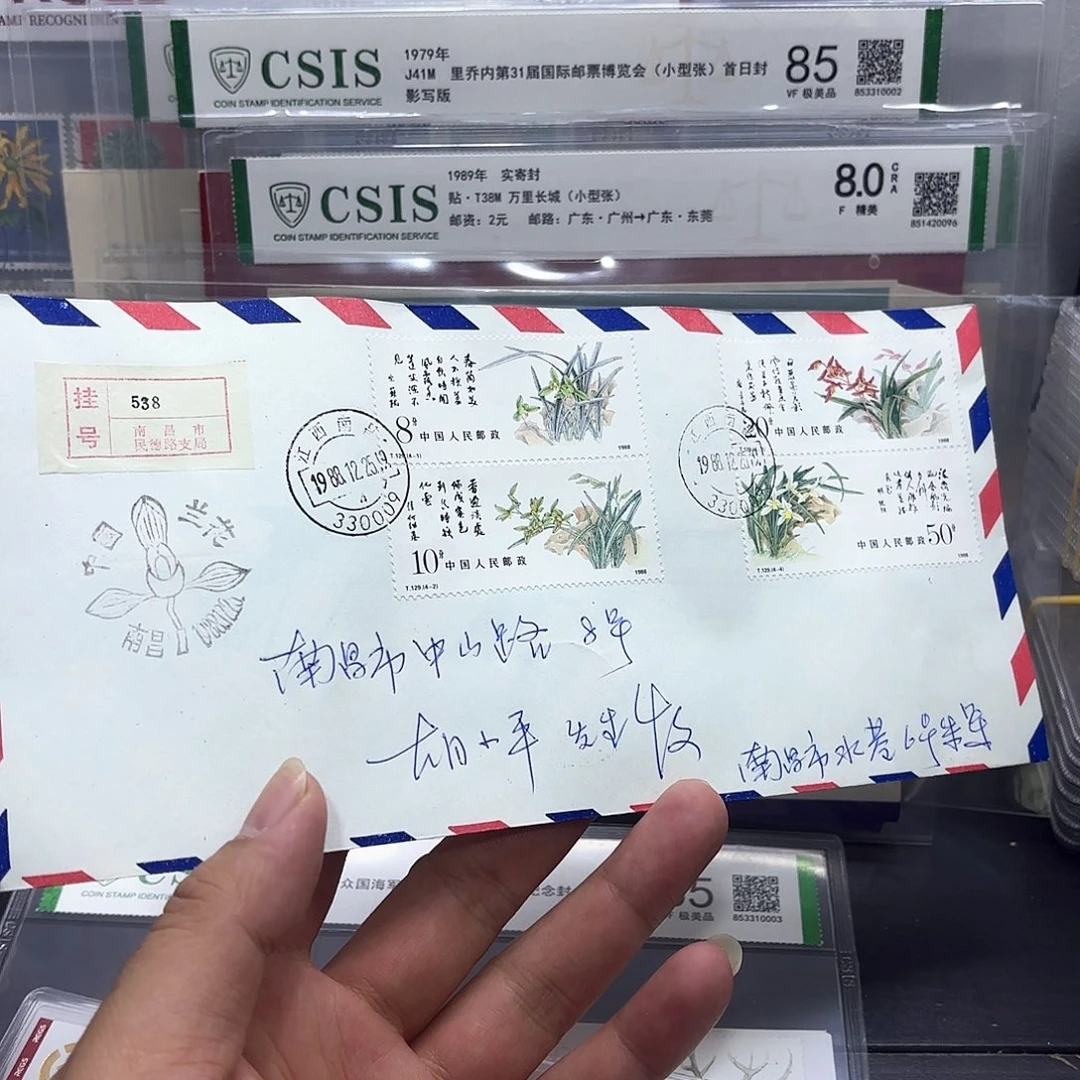 AMP RECOGNI
CSIS
COIN STAMP IDENTIFICATION SERVICE
1979年
J41M 里乔内第31届国际邮票博览会（小型张）首日封
影写版
85
VF 极美品
853310002
CSIS
COIN STAMP IDENTIFICATION SERVICE
1989年 实寄封
贴·T38M 万里长城（小型张）
邮资：2元 邮路：广东·广州→广东·东莞
8.0 GRA
F 精美
851420096
挂号
538
南昌市
民德路支局
江西南昌
1988.12.25.19
330009
8分
中国人民邮政
T.129.(4-1)
1988
10分
中国人民邮政
T.129.(4-2)
1988
1988.12.25
3300
20分
中国人民邮政
1988
中国人民邮政
50分
T.129.(4-4)
1988
中国兰花
南昌
南昌市中山路 8号
胡小平 先生收
南昌市水巷6号朱军
COIN STAMP IDENTIFICATION SERVICE
众国海军
念封
85
VF 极美品
853310003
CSIS
REGS
REGS